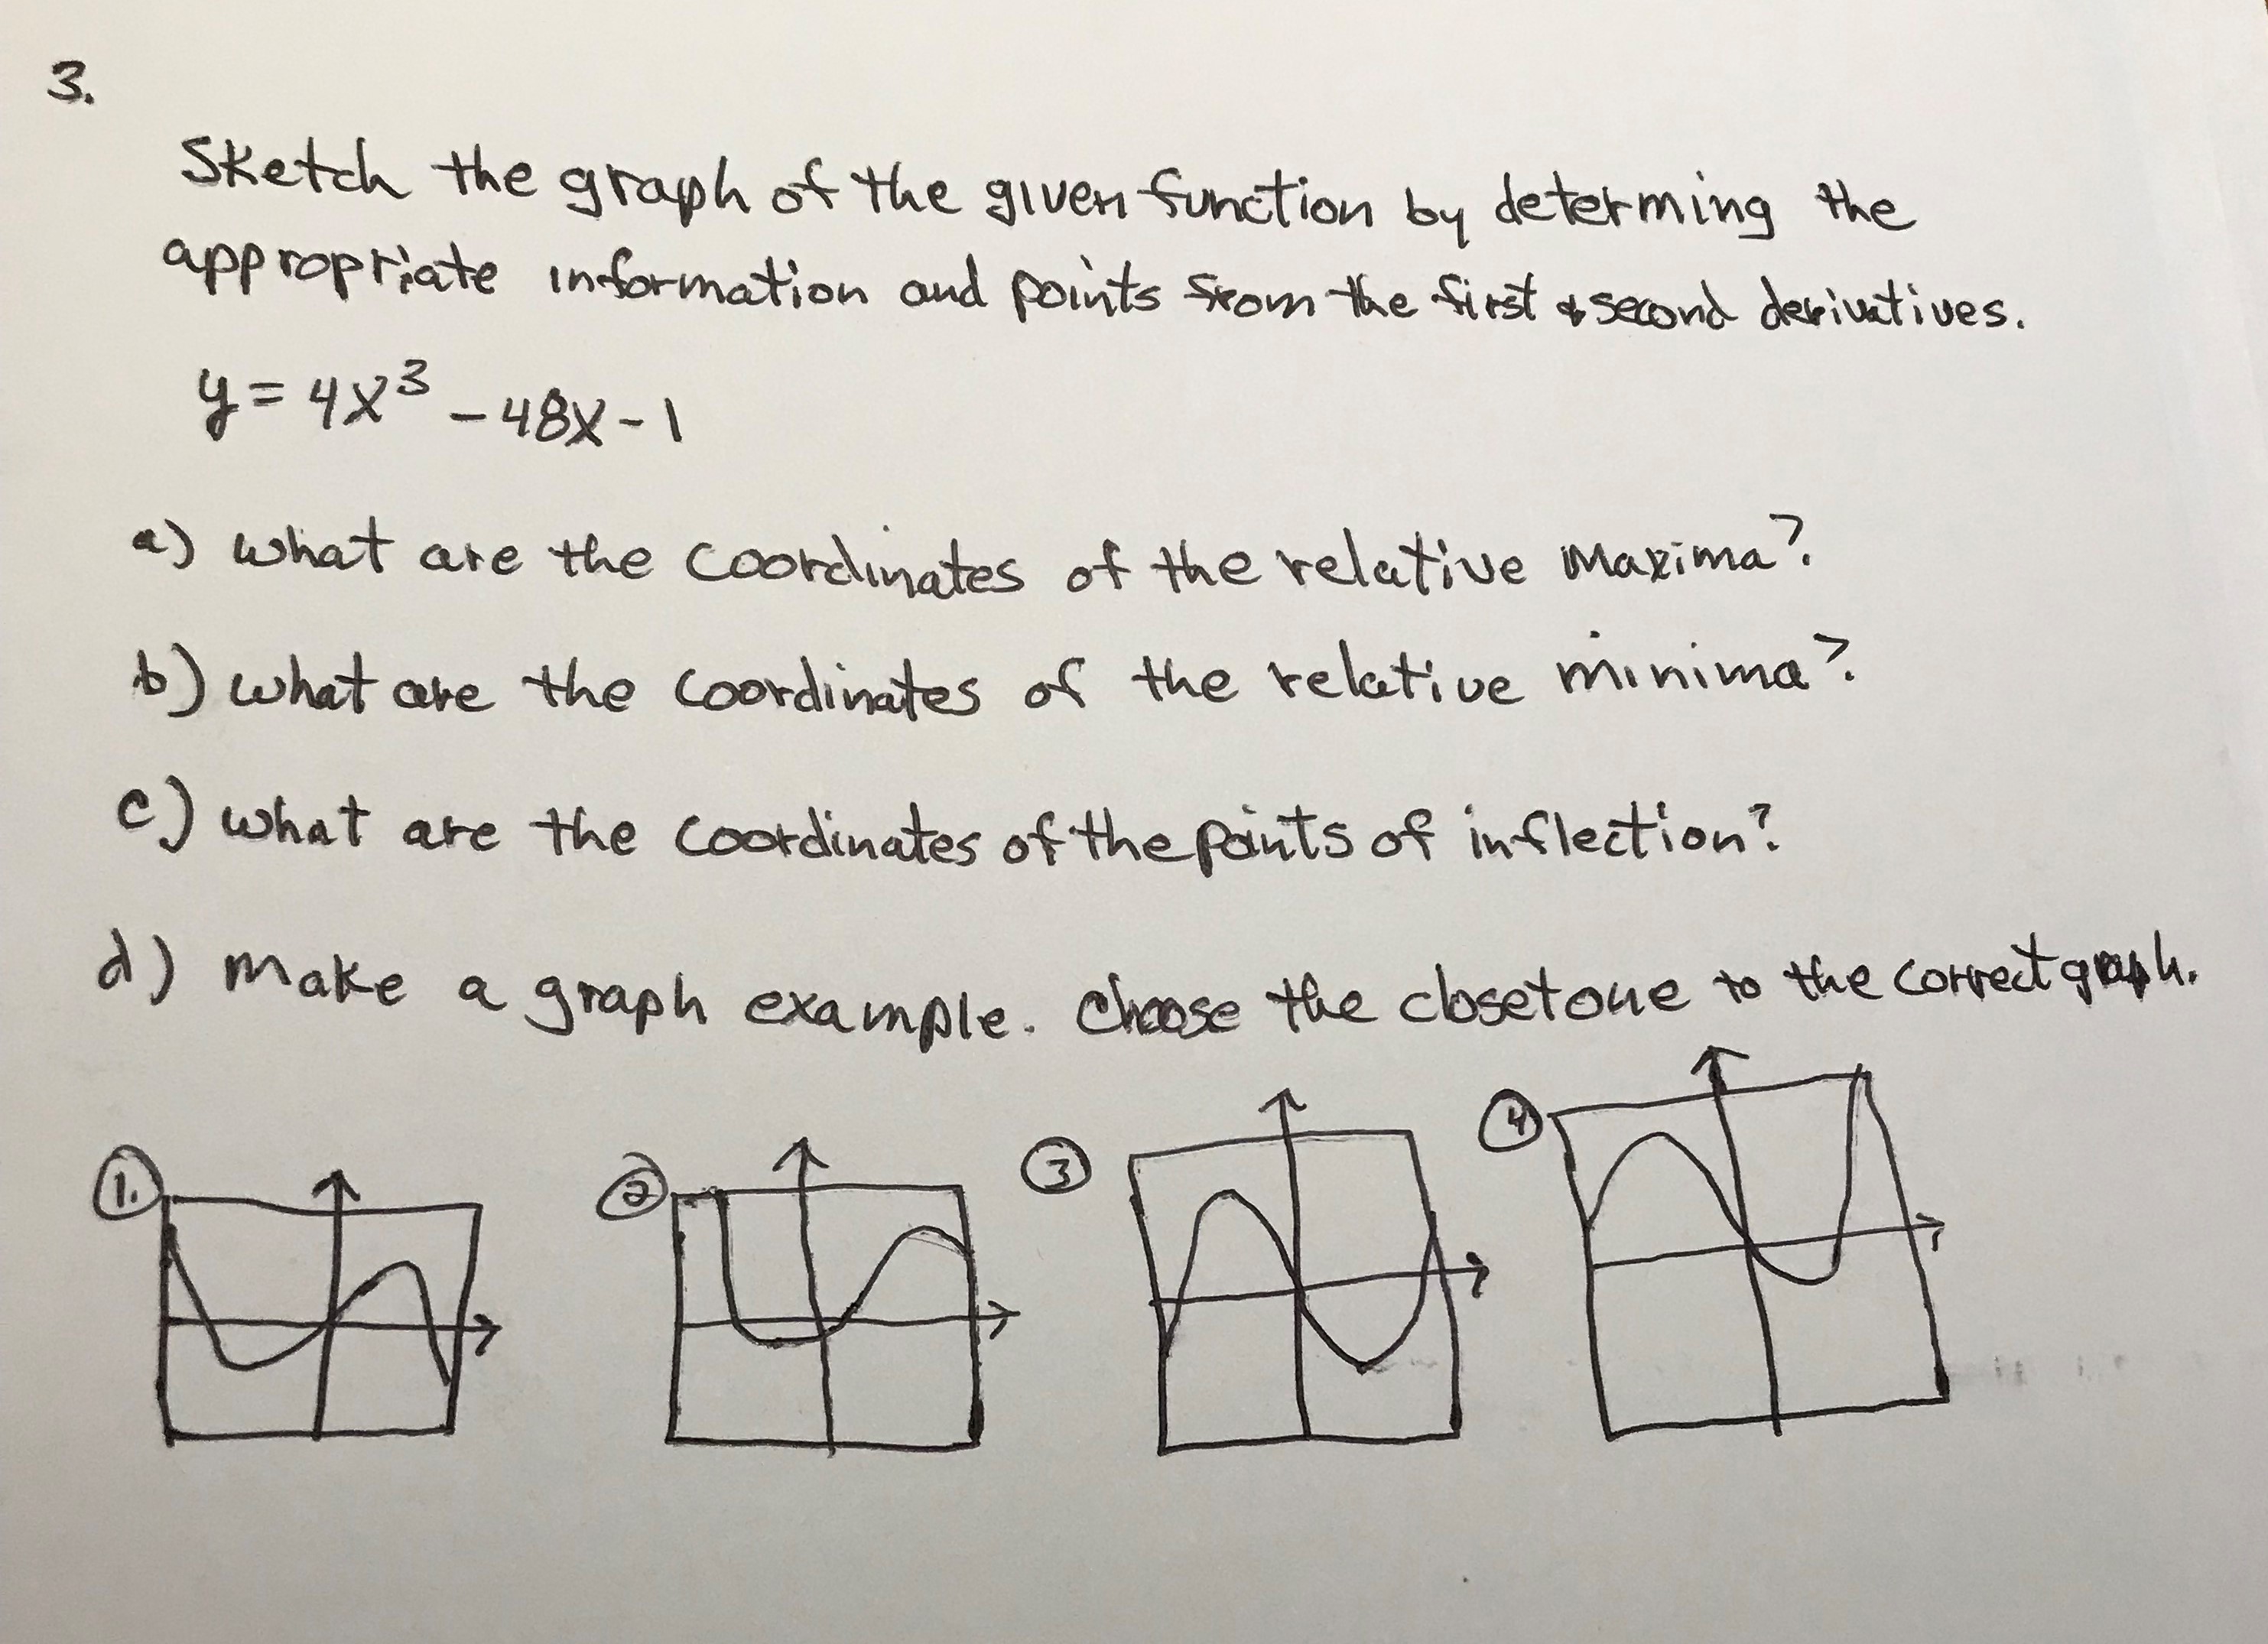 3.
Sketch the graph of the given function by determing the
appropriate information and points from the first & second derivatives.
y = 4x³ - 48x - 1
a) what are the coordinates of the relative maxima?
b) what are the coordinates of the relative minima?
c.) what are the coordinates of the points of inflection?
d) make a graph example. choose the closet one to the correct graph.
1. 2 3 4